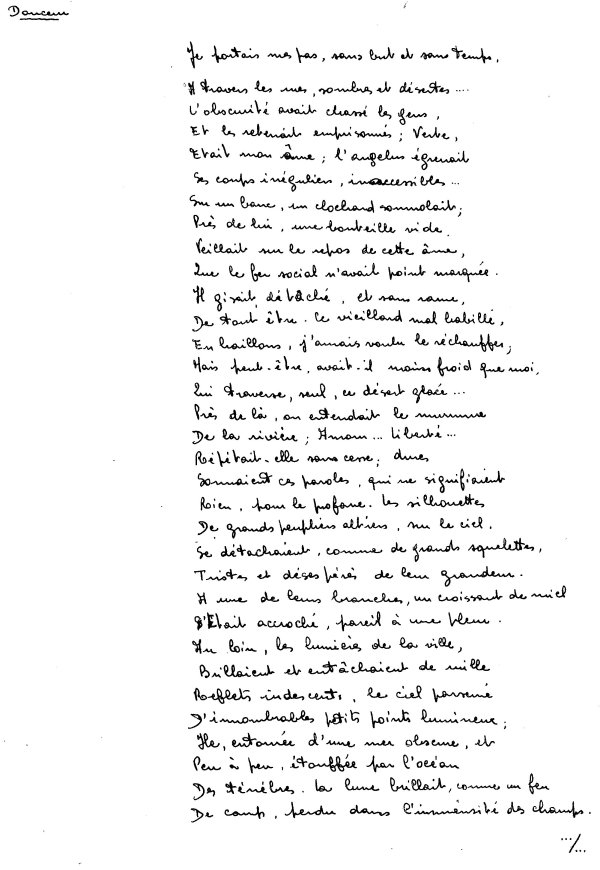 Douceur
Je portais mes pas, sans but et sans temps,
A travers les rues, sombres et désertes ....
L'obscurité avait chassé les gens,
Et les retenait emprisonnés ; Verte,
Etait mon âme ; l'angelus égrenait
Ses coups irréguliers, inaccessibles ...
Sur un banc, un clochard somnolait ;
Près de lui, une bouteille vide.
Veillait sur le repos de cette âme,
Que le fer social n'avait point marquée.
Il gisait, détaché, et sans rame,
De tout être. Ce vieillard mal habillé,
En haillons, j'aurais voulu le réchauffer ;
Mais peut-être, avait-il moins froid que moi,
Qui traverse, seul, ce désert glacé ...
Près de là, on entendait le murmure
De la rivière ; Amour ... Liberté ...
Répétait-elle sans cesse ; dures
Sonnaient ces paroles, qui ne signifiaient
Rien, pour le profane. Les silhouettes
De grands peupliers altiers, sur le ciel.
Se détachaient, comme de grands squelettes,
Tristes et désespérés de leur grandeur.
A une de leurs branches, un croissant de miel
S'Etait accroché, pareil à une fleur.
Au loin, les lumières de la ville,
Brillaient et entâchaient de mille
Reflets iridescents, le ciel parsemé
D'innombrables petits points lumineux ;
Ile, entourée d'une mer obscure, et
Peu à peu, étouffée par l'océan
Des ténèbres. La lune brillait, comme un feu
De camp, perdu dans l'immensité des champs.
.../...